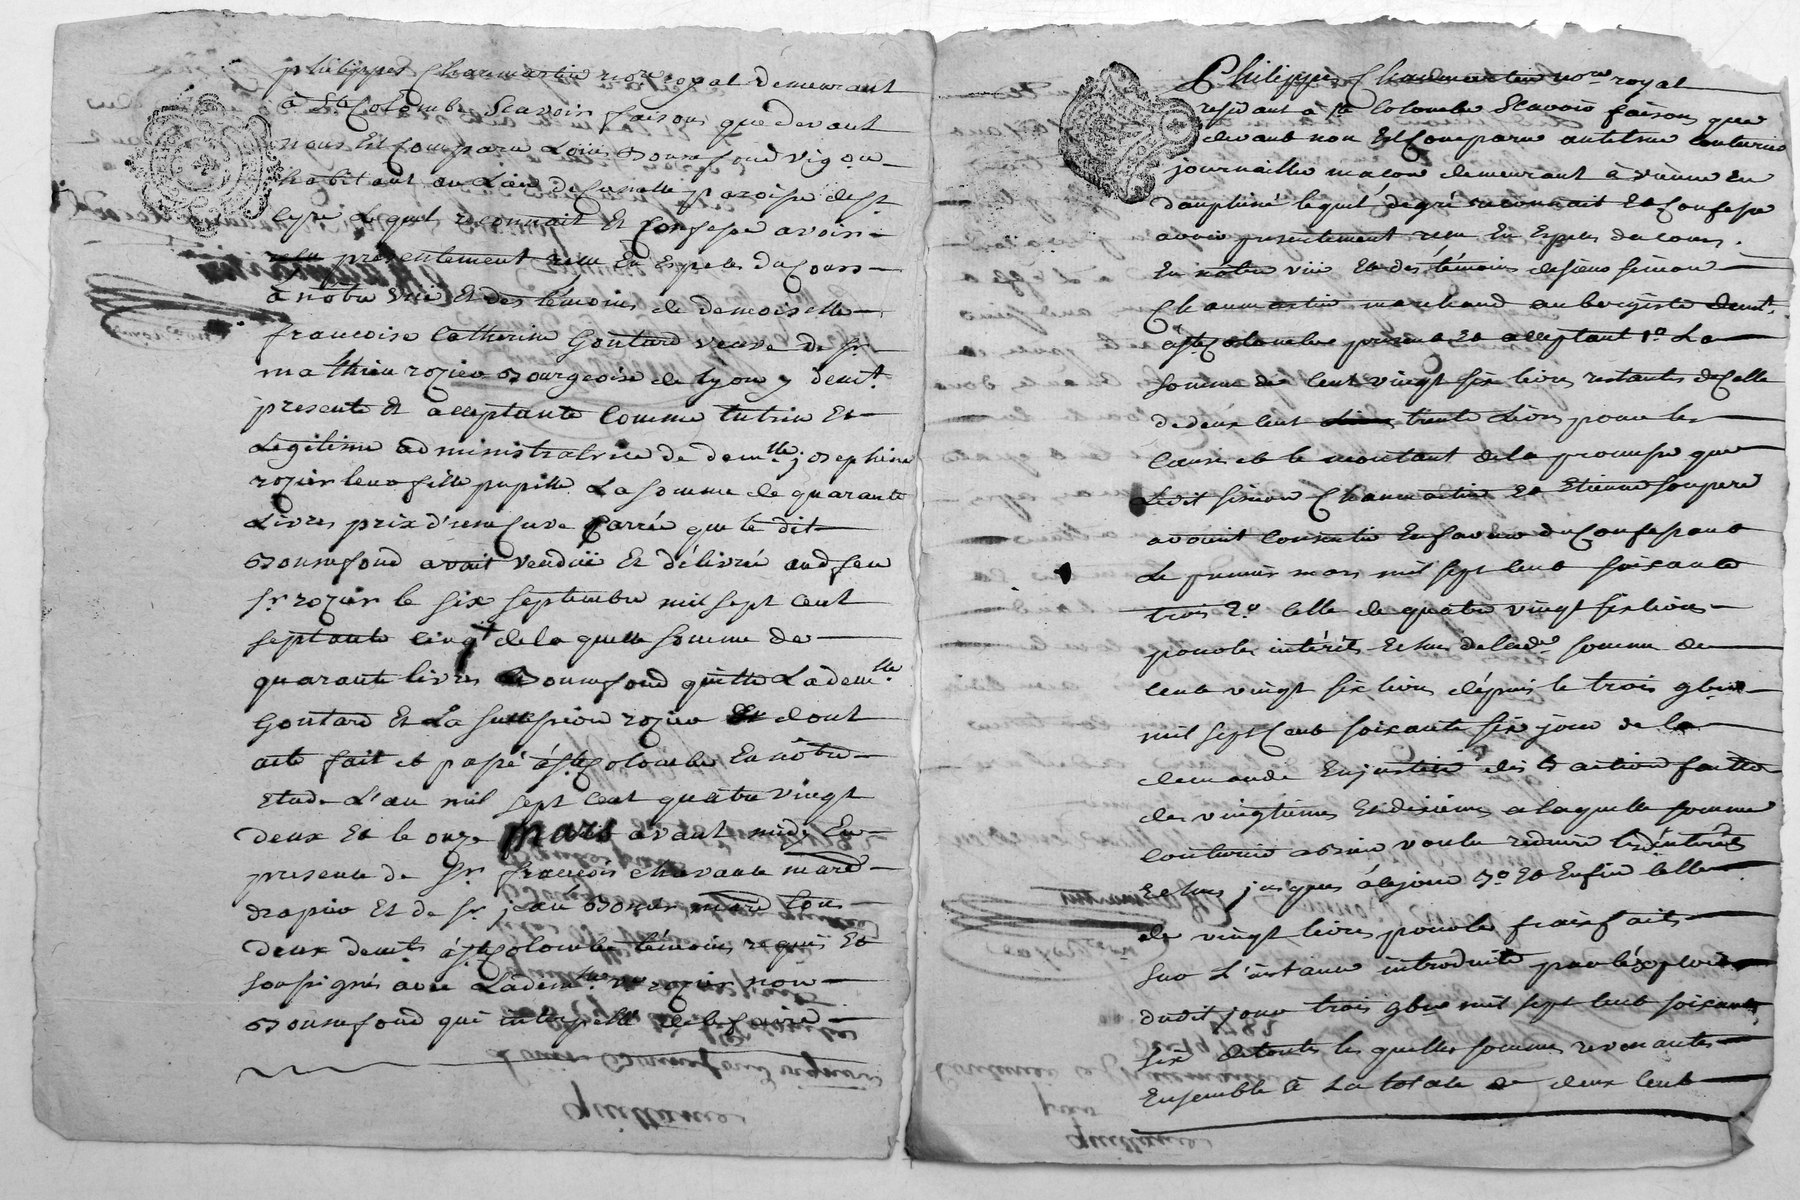 philippes Chaumartin nore royal demeurant
à Ste Colombe Scavoir faisons que devant
nous Est Comparu Louis Bonnefond vigon
habitant au Lieu de paroisse de St
Cyr Lequel reconnait Et Confesse avoir
reçu présentement reçu En Espèces du Cours
à notre vüe Et des témoins de demoiselle
francoise Catherine Goutard veuve de Sr
mathieu rozier Bourgeois de lyon y demt.
presente Et acceptante Comme tutrice Et
Légitime administratrice de demlle josephine
rozier leur fille pupille La Somme de quarante
Livres prix d'une Cuve Carrée que le dit
Bonnefond avoit vendüe Et délivrée aud feu
Sr rozier le Six Septembre mil Sept Cent
Septante Cinq de la quelle Somme de
quarante livres Bonnefond quitte La demlle
Goutard Et La Succession rozier Et dont
acte fait et passé à Ste Colombe En nôtre
Etude L'an mil Sept Cent quatre vingt
deux Et le onze mars avant midy En
presence de Sr françois Chavante mard
drapier Et de Sr jean Bonet mard tous
deux demts à Ste Colombe témoins requis Et
Soussignés avec La demlle ve rozier non
Bonnefond qui interpellé de le faire
quittance
Philippes Chaumartin nore royal
residant à Ste Colombe Scavoir faisons que
devant nou Est Comparu antelme Couturier
journaillier macon demeurant à vienne En
dauphiné lequel de gré reconnait Et Confesse
avoir presentement reçu En Espèces du cours
En notre vüe Et des témoins de Sieur Simon
Chaumartin marchand aubergiste demt.
à Ste Colombe présent Et acceptant 1o La
Somme de Cent vingt Six livres restantes de Celle
de deux Cent trente Livres pour les
Causes et le montant de la promesse que
Ledit Simon Chaumartin Et Etienne Son pere
avoient Consentie En faveur du Confessant
Le premier mars mil Sept Cent Soixante
trois 2o Celle de quatre vingt Six livres
pour les intérêts Echus de lade Somme de
Cent vingt Six livres depuis le trois 9bre
mil Sept Cent Soixante Six jour de la
demande En justice action faitte
des vingtiemes Et dixiemes a laquelle Somme
Couturier a bien voulu reduire les intérêts
Echus jusques à ce jour 3o Et Enfin Celle
de vingt livres pour les frais faits
Sur L'instance introduite par l'exploit
dudit jour trois 9bre mil Sept Cent Soixante
Six de toutes les quelles Sommes revenantes
Ensemble à La totale de deux Cent
quittance